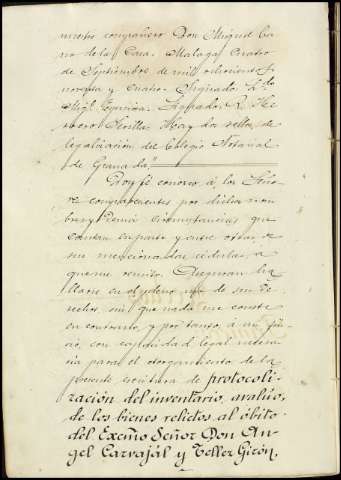 nuestro compañero Don Miguel Ca-
no de la Casa. Malaga cuatro
de Septiembre de mil ochocientos
noventa y cuatro. Signado. Ldo
Migl. Espinosa. Signado. R. He-
rrero Sevilla. Hay dos sellos de
legalización del Colegio Notarial
de Granada"
Doy fé conocer á los Seño-
res comparecientes por dichos nom-
bres y demás circunstancias que
constan en parte y entre otras, de
sus mencionadas cédulas, a
que me remito. Aseguran ha-
llarse en el pleno uso de sus de-
rechos, sin que nada me conste
en contrario, y por tanto, á mi jui-
cio, con capacidad legal necesa-
ria para el otorgamiento de la
presente escritura de protocoli-
zación del inventario, avalúo,
de los bienes relictos al óbito
del Excmo Señor Don An-
gel Carvajál y Tellez Girón,